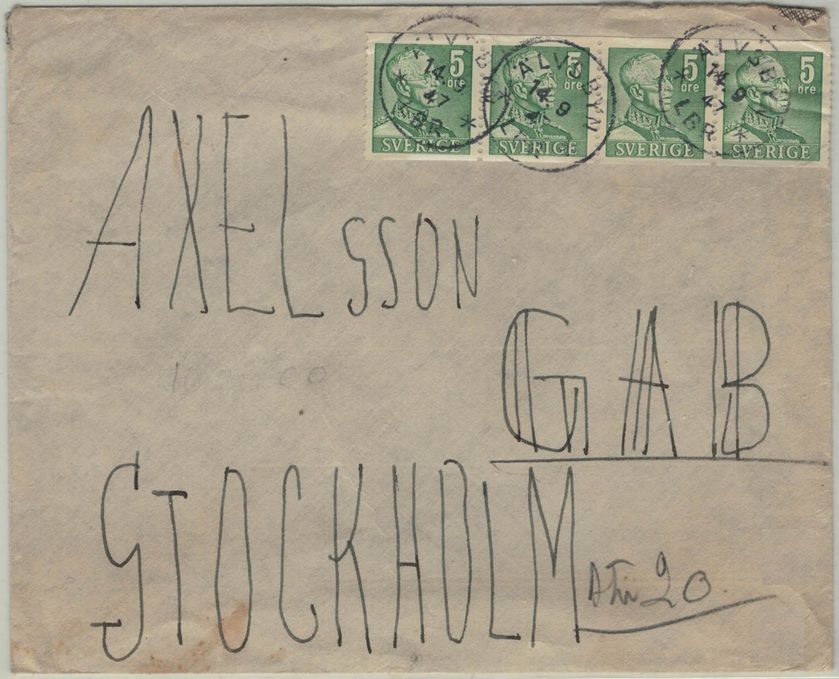 5 öre SVERIGE 5 öre SVERIGE 5 öre SVERIGE 5 öre SVERIGE
ÄLVSBYN 14.9 47 LBR
ÄLVSBYN 14.9 47
ÄLVSBYN 14.9 47 LBR
AXELSSON
GAB
STOCKHOLM
20